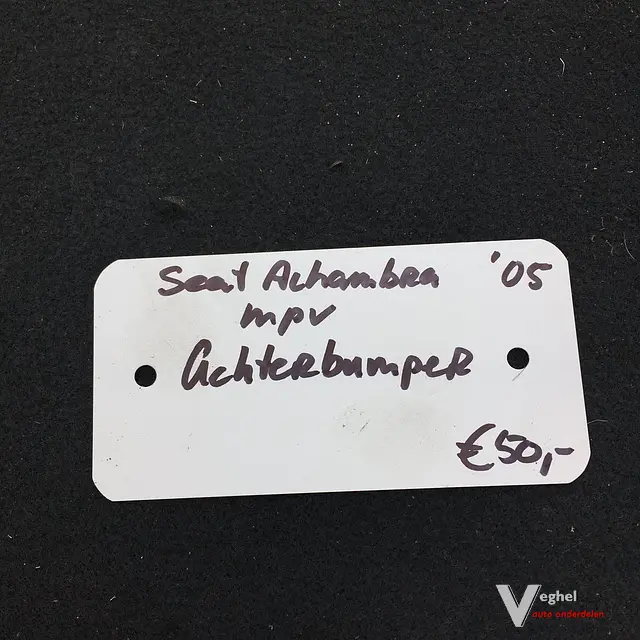 Seat Alhambra '05
mpv
Achterbumper
€50,-
Veghel
auto onderdelen